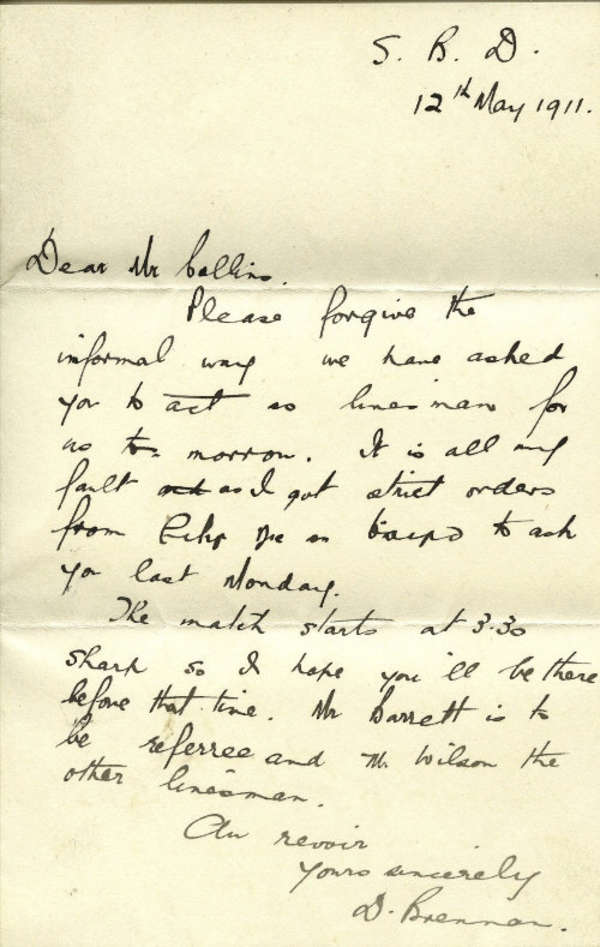 S. B. D.
12th May 1911.
Dear Mr Collins.
Please forgive the
informal way we have asked
you to act as linesman for
us to-morrow. It is all my
fault as I got strict orders
from to ask
you last Monday.
The match starts at 3.30
sharp so I hope you'll be there
before that time. Mr Barrett is to
be referree and Mr. Wilson the
other linesman.
Au revoir
yours sincerely
D. Brennan.